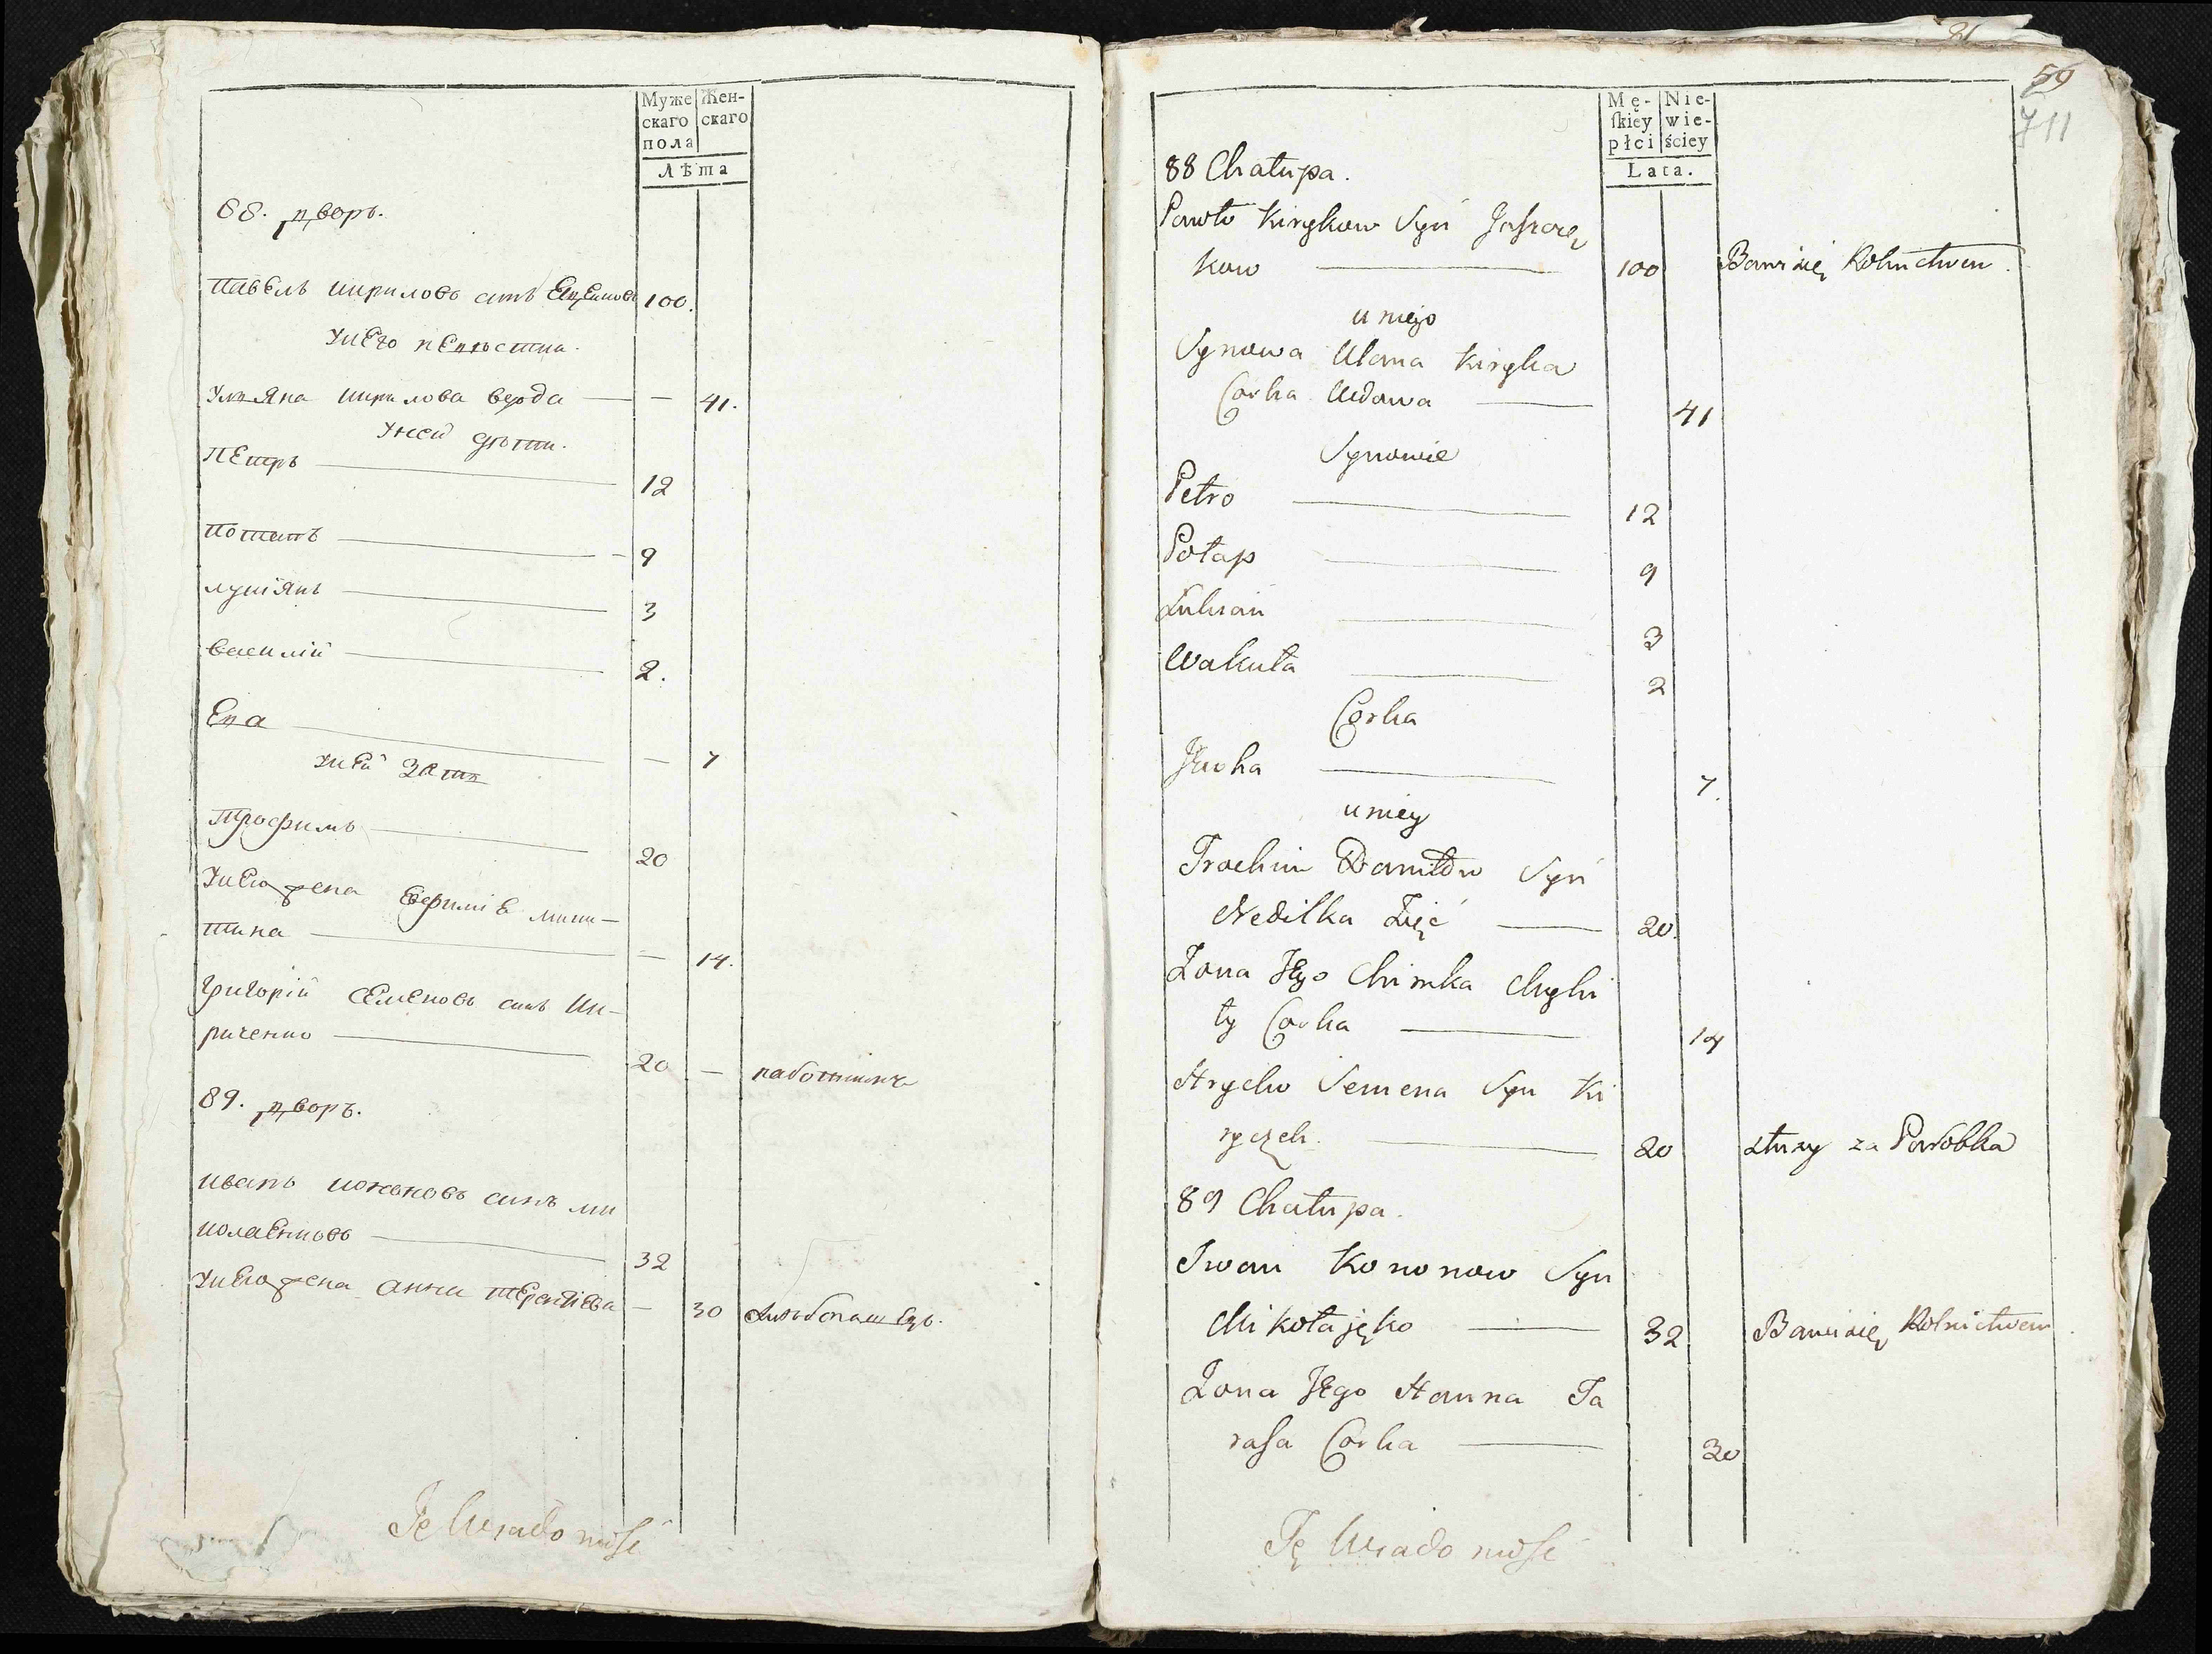 Муже Жен-
скаго скаго
пола
Лѣта
88. дворъ.
Павелъ Кириловъ синъ 100.
у него невѣстка
Уляна Кирилова вдова — — 41.
у ней дѣти.
Петръ — 12
Потапъ — 9
Лукіянъ — 3
Василій — 2.
Ева — — 7
у ней зять
Трофимъ — 20
у него жена Евфиміѣ Мики-
тина — — 14.
Григорій Семеновъ синъ Ки-
риченко — 20 — работникъ
89. дворъ.
Иванъ Кононовъ синъ Ми
колаенковъ — 32
у него жена Анна Терентіева — 30 хлѣбопашецъ.
Tę Wiadomość
81
59
711
Mę- Nie-
ſkiey wie-
płci ściey
Lata.
88 Chałupa.
Pawło Kirykow Syn
kow — 100 Bawi się Rolnictwem.
u niego
Synowa Ulana Kiryka
Corka Wdowa — 41
Synowie
Petro — 12
Potap — 9
Łukian — 3
Wakuła — 2
Corka
Jewka — 7.
u niey
Trochim Daniłow Syn
Nedilka Zięć — 20.
Żona Jego Chimka Myki
ty Corka — 14
Hrycko Semena Syn Ki
ryczek. — 20 służy za Parobka
89 Chałupa.
Iwan Kononow Syn
Mikołajęko — 32 Bawi się Rolnictwem.
Żona Jego Hanna Ta
rasa Corka — 30
Tę Wiadomość